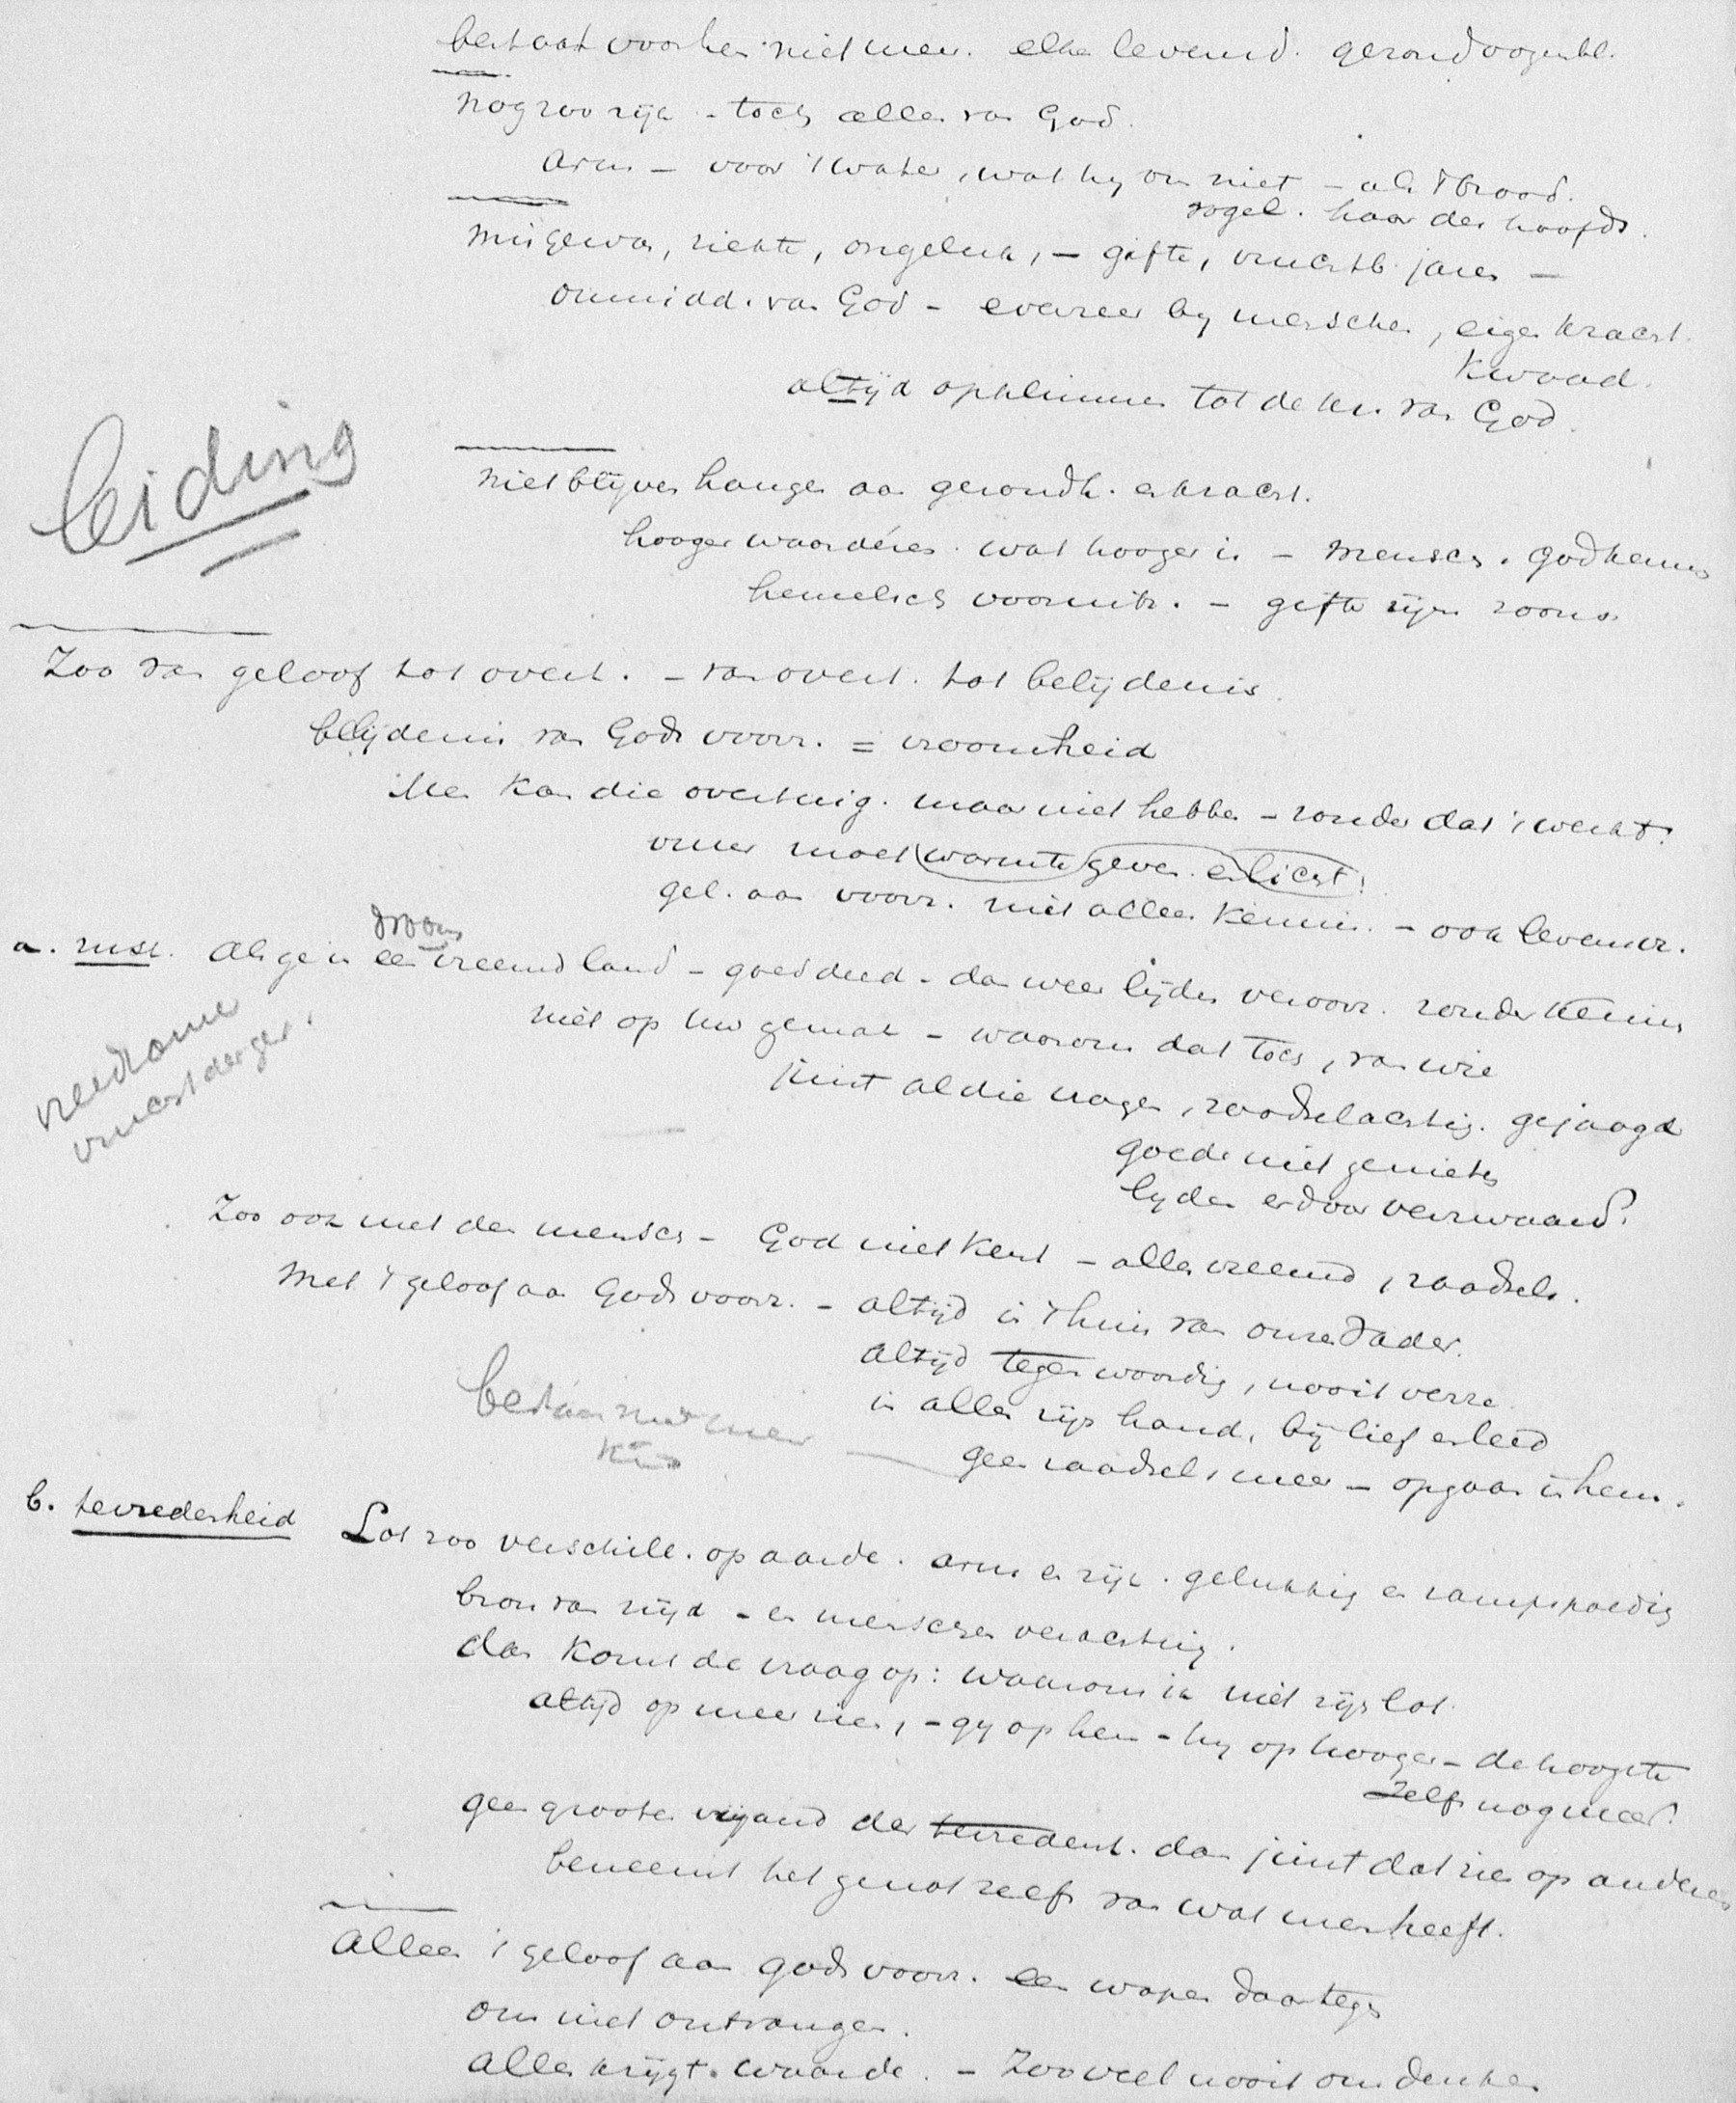 bestaat voor hen niet meer. elke levend. gezond oogenbl.
nog zoo rijk - toch alles van God.
arm - voor 't water, wat hy ons niet - als 't brood.
vogel. haar des hoofds.
misgewas, ziekte, ongeluk, - gifte, vruchtb. jaren -
onmidd. van God - evenzeer by menschen, eigen kracht.
kwaad.
altijd opklimmen tot de ken. van God.
leiding
niet blijven hangen aan gezondh. en kracht.
hooger waardéren wat hooger is - mensch. Godkennis
hemelsch vooruitz. - gifte zijns zoons
Zoo van geloof tot overt. - van overt. tot belijdenis.
belijdenis van Gods voorz. = vroomheid
Men kan die overtuig. maar niet hebben - zonder dat 't werkt.
vuur moet warmte geven en licht!
gel. aan voorz. niet alleen kennis. - ook levenser.
droom
a. rust. Als ge in een vreemd land - goed deed - dan weer lijden veroorz. zonder kennis
niet op uw gemak - waarom dat toch, van wie
vreedzame
vruchtdrager.
juist al die vragen, raadselachtig. gejaagd
goede niet genieten
lijden erdoor verzwaard.
Zoo ook met den mensch - God niet kent - alles vreemd, raadsels.
Met 't geloof aan Gods voorz. - altijd in 't huis van onze Vader.
altijd tegenwoordig, nooit verre.
in alles zijn hand, bij lief en leed
geen raadsels meer - opgaan in hem.
b. tevredenheid Lot zoo verschill. op aarde. arm en rijk. gelukkig en rampspoedig
bron van nijd - en menschenverachting.
dan komt de vraag op: waarom ik niet zijn lot.
altijd op meer zien, - gy op hem - hy op hooger - de hoogste
zelfs nog meer.
geen grooter vijand der tevredenh. dan juist dat zien op anderen
beneemt het genot zelfs van wat men heeft.
Alleen 't geloof aan gods voorz. een wapen daartegen
om niet ontvangen.
alles krijgt waarde. - Zooveel nooit om denken